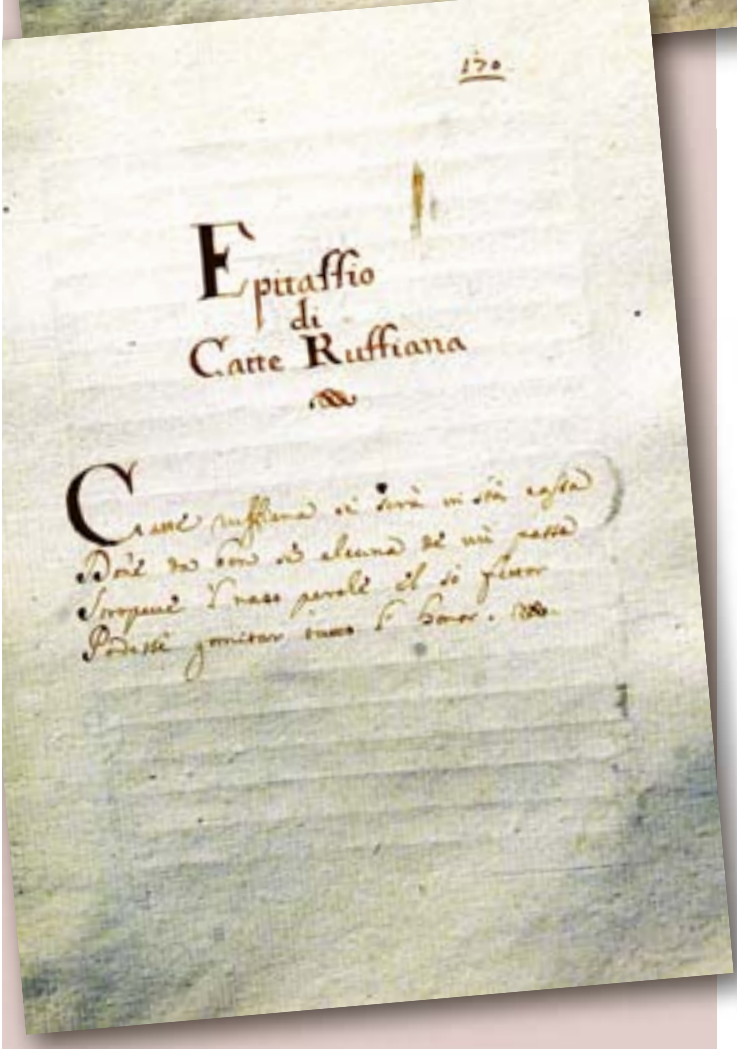 170
Epitaffio
di
Catte Ruffiana
Catte ruffiana si serà in stà cassa
Donè da bon se alcuna de vù passa
Stropeve l naso perche el so fetor
Podessè gomitar tutto l' honor.